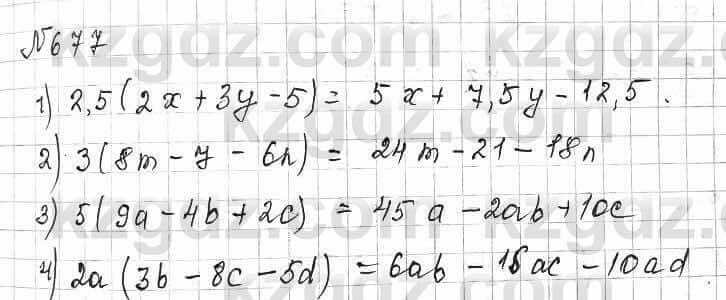 №677
1) 2,5(2x+3y-5)= 5x+7,5y-12,5.
2) 3(8m-7-6n) = 24m-21-18n
3) 5(9a-4b+2c) = 45a-20b+10c
4) 2a(3b-8c-5d) =6ab-16ac-10ad
kzgdz.com